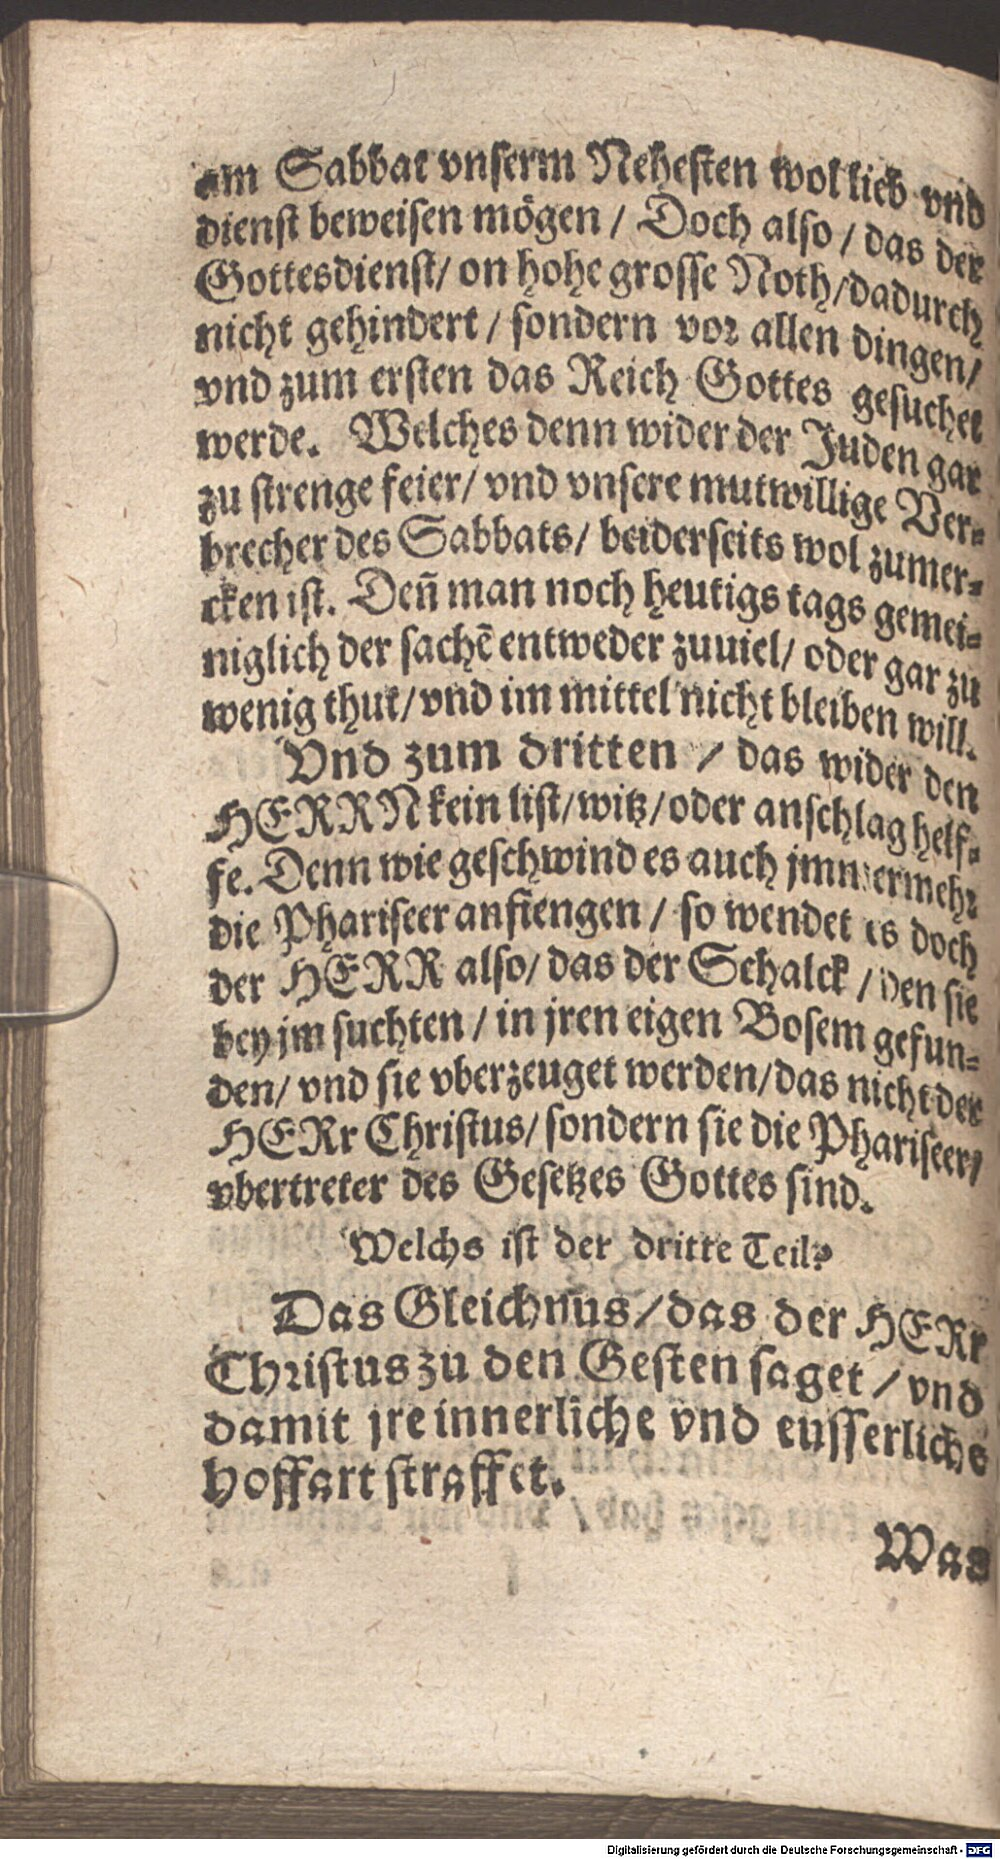 am Sabbat vnserm Nehesten wol lieb vnd
dienst beweisen mögen / Doch also / das der
Gottesdienst / on hohe grosse Noth / dadurch
nicht gehindert / sondern vor allen dingen /
vnd zum ersten das Reich Gottes gesuchet
werde. Welches denn wider der Juden gar
zu strenge feier / vnd vnsere mutwillige Ver-
brecher des Sabbats / beiderseits wol zumer-
cken ist. Deñ man noch heutigs tags gemei-
niglich der sachē entweder zuuiel / oder gar zu
wenig thut / vnd im mittel nicht bleiben will.
Vnd zum dritten / das wider den
HERRN kein list / witz / oder anschlag helf-
fe. Denn wie geschwind es auch jmmermehr
die Phariseer anfiengen / so wendet es doch
der HERR also / das der Schalck / den sie
bey jm suchten / in jren eigen Bosem gefun-
den / vnd sie vberzeuget werden / das nicht der
HERr Christus / sondern sie die Phariseer /
vbertreter des Gesetzes Gottes sind.
Welchs ist der dritte Teil?
Das Gleichnus / das der HERr
Christus zu den Gesten saget / vnd
damit jre innerliche vnd eusserliche
hoffart straffet.
Was
Digitalisierung gefördert durch die Deutsche Forschungsgemeinschaft - DFG